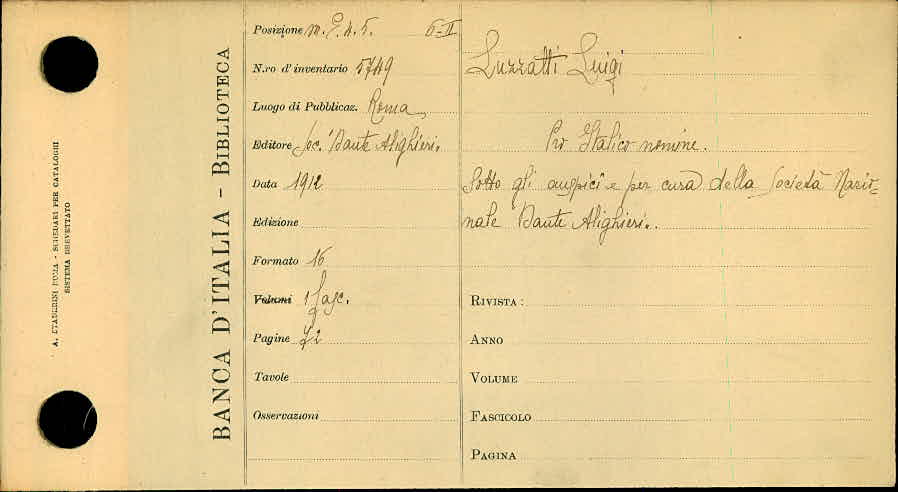 A. STADERINI ROMA - SCHEDARI PER CATALOGHI
SISTEMA BREVETTATO
BANCA D'ITALIA - BIBLIOTECA
Posizione 6-II
N.ro d'inventario 5749
Luogo di Pubblicaz. Roma
Editore Soc. Dante Alighieri.
Data 1912
Edizione
Formato 16
Volumi 1 fasc.
Pagine 72
Tavole
Osservazioni
Luzzatti Luigi
Pro Italico nomine.
Sotto gli auspici e per cura della Società Nazio-
nale Dante Alighieri.
RIVISTA:
ANNO
VOLUME
FASCICOLO
PAGINA